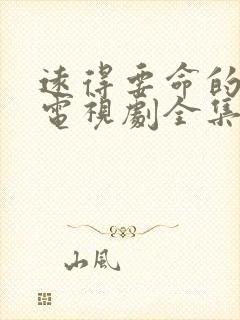 遠得要命的
電視劇全集
山風